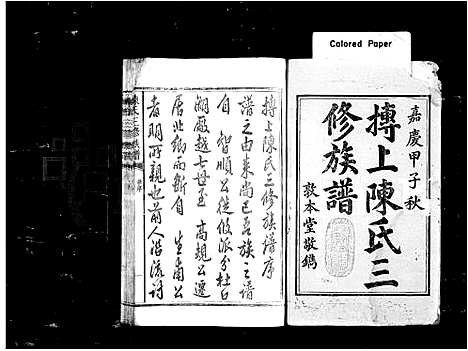 Colored Paper
嘉慶甲子秋
摶上陳氏三
修族譜
敦本堂敬鐫
摶上陳氏三修族譜序
譜之由来尚已吾族之譜
自 智順公從攸派分杜白
嗣厥越七世至 高觀公遷
居此鄉而斷自 生甫公
者明所親也前人沿流討